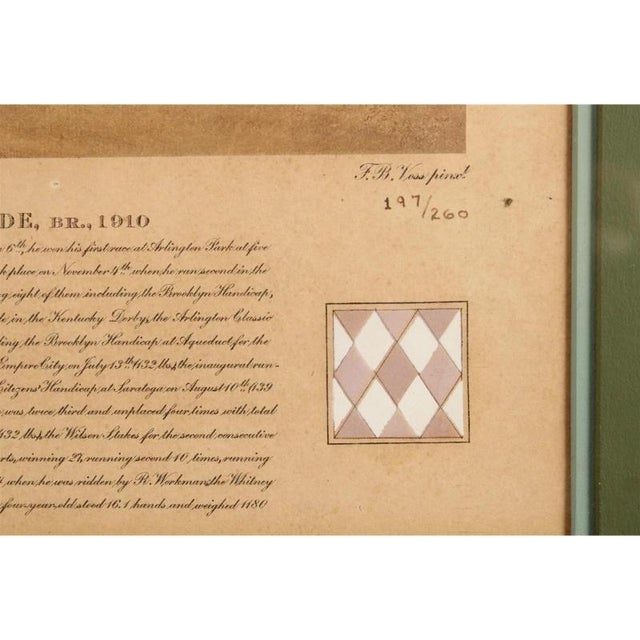 F.B. Voss pinxt.
197/260
DE, BR., 1910
6th, he won his first race at Arlington Park at five
k place on November 4th when he ran second in the
g eight of them including the Brooklyn Handicap,
le in the Kentucky Derby, the Arlington Classic
ing the Brooklyn Handicap at Aqueduct, for the
Empire City, on July 13th (132 lbs.), the inaugural run-
Citizens' Handicap, at Saratoga, on August 10th (139
was twice, third and unplaced four times with total
132 lbs.), the Wilson Stakes for the second consecutive
rts, winning 27, running second 10 times, running
when he was ridden by R. Workman, the Whitney
four-year-old stood 16.1 hands and weighed 1180